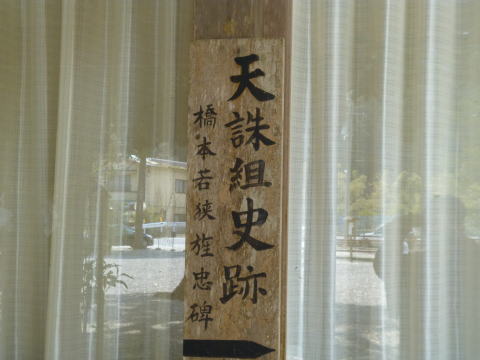 天誅組史跡
橋本若狭旌忠碑